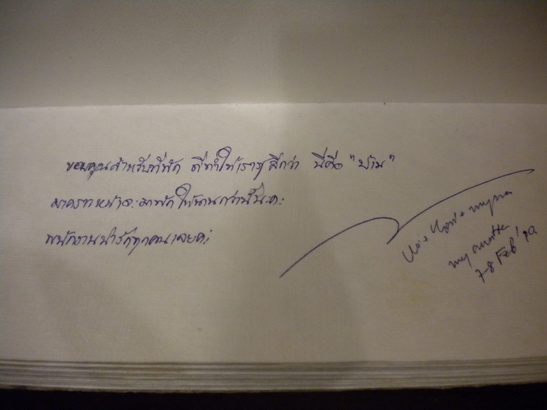 ขอบคุณสำหรับที่พัก ที่ทำให้เรารู้สึกว่า นี่คือ "บ้าน"
มาคราวหน้าจะมาพักให้นานกว่านี้นะคะ
พนักงานน่ารักทุกคนเลยค่ะ
my auntie
7-8 Feb'